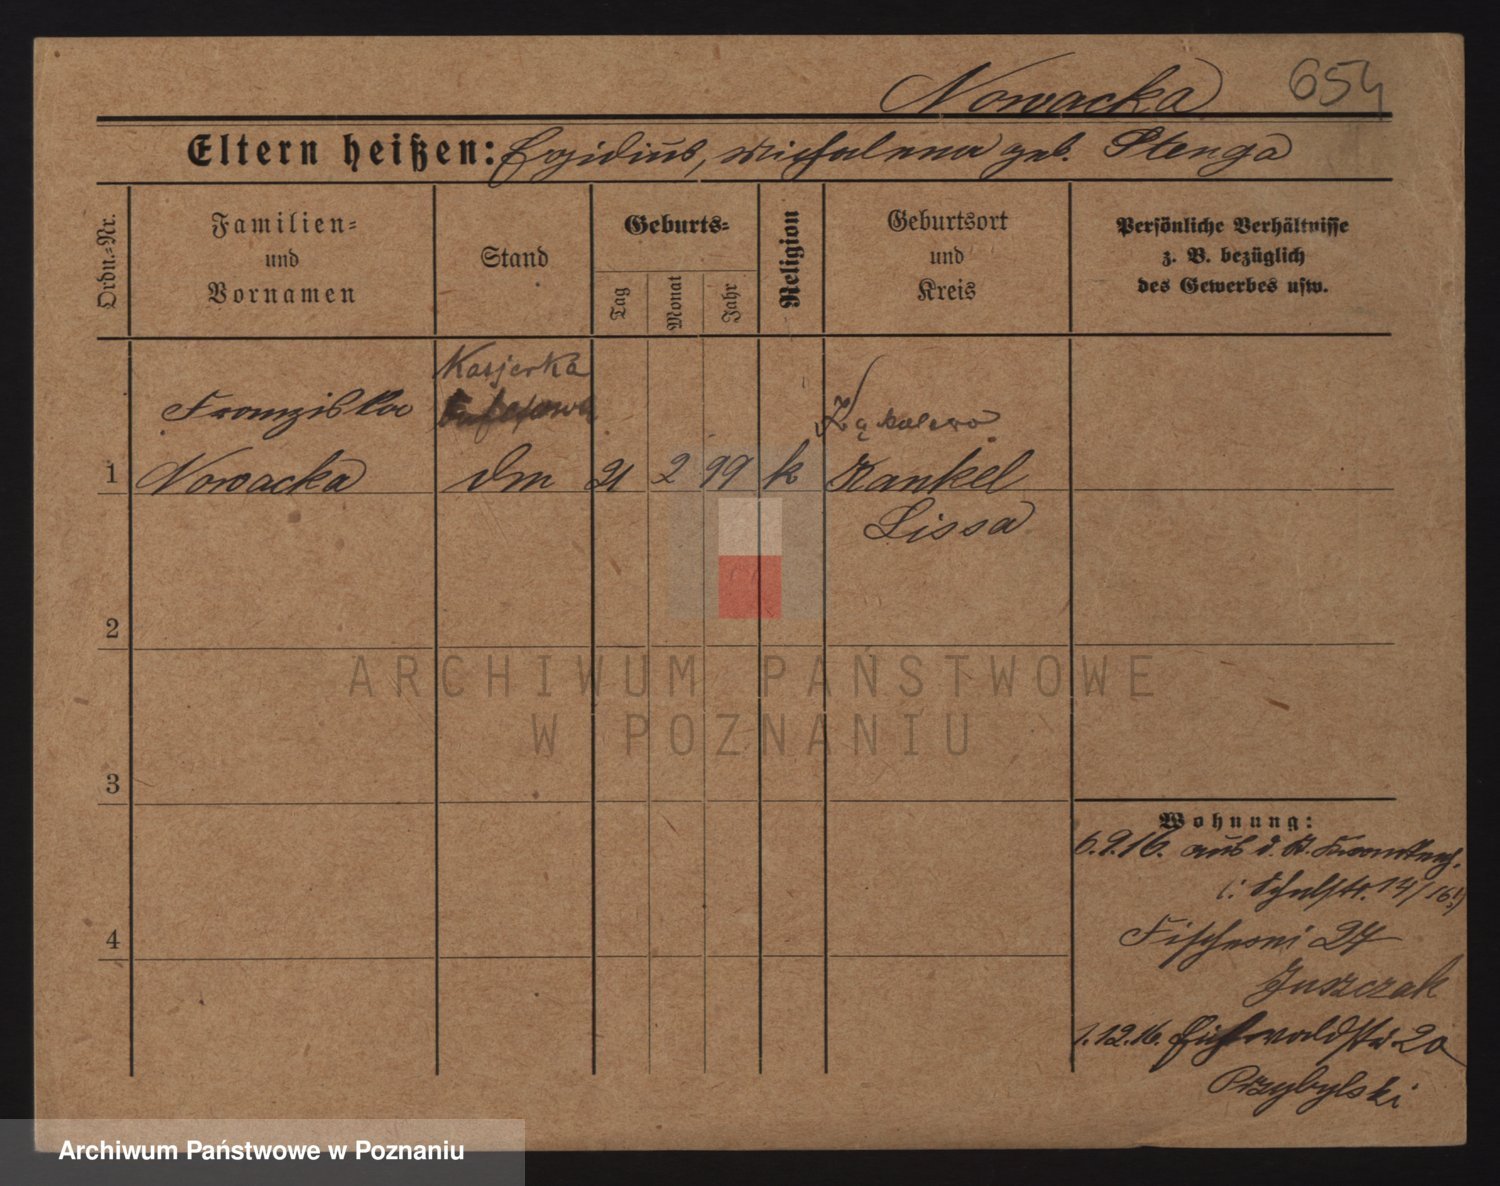 Nowacka 654
Eltern heißen: Egidius, Michalena geb. Stenga
Ordn.-Nr.
Familien-
und
Vornamen
Stand
Geburts-
Tag
Monat
Jahr
Religion
Geburtsort
und
Kreis
Persönliche Verhältnisse
z. B. bezüglich
des Gewerbes usw.
Kasjerka
Franziska
Żąkalewo
1 Nowacka dm 21 2 99 k Kankel
Lissa
2
ARCHIWUM PAŃSTWOWE
W POZNANIU
3
Wohnung:
6.9.16. aus d. St. Krankenh.
(: Schulstr. 14/16 :)
4
Fischerei 27
Juszczak
1.12.16. Eichwaldstr. 2a
Przybylski
Archiwum Państwowe w Poznaniu